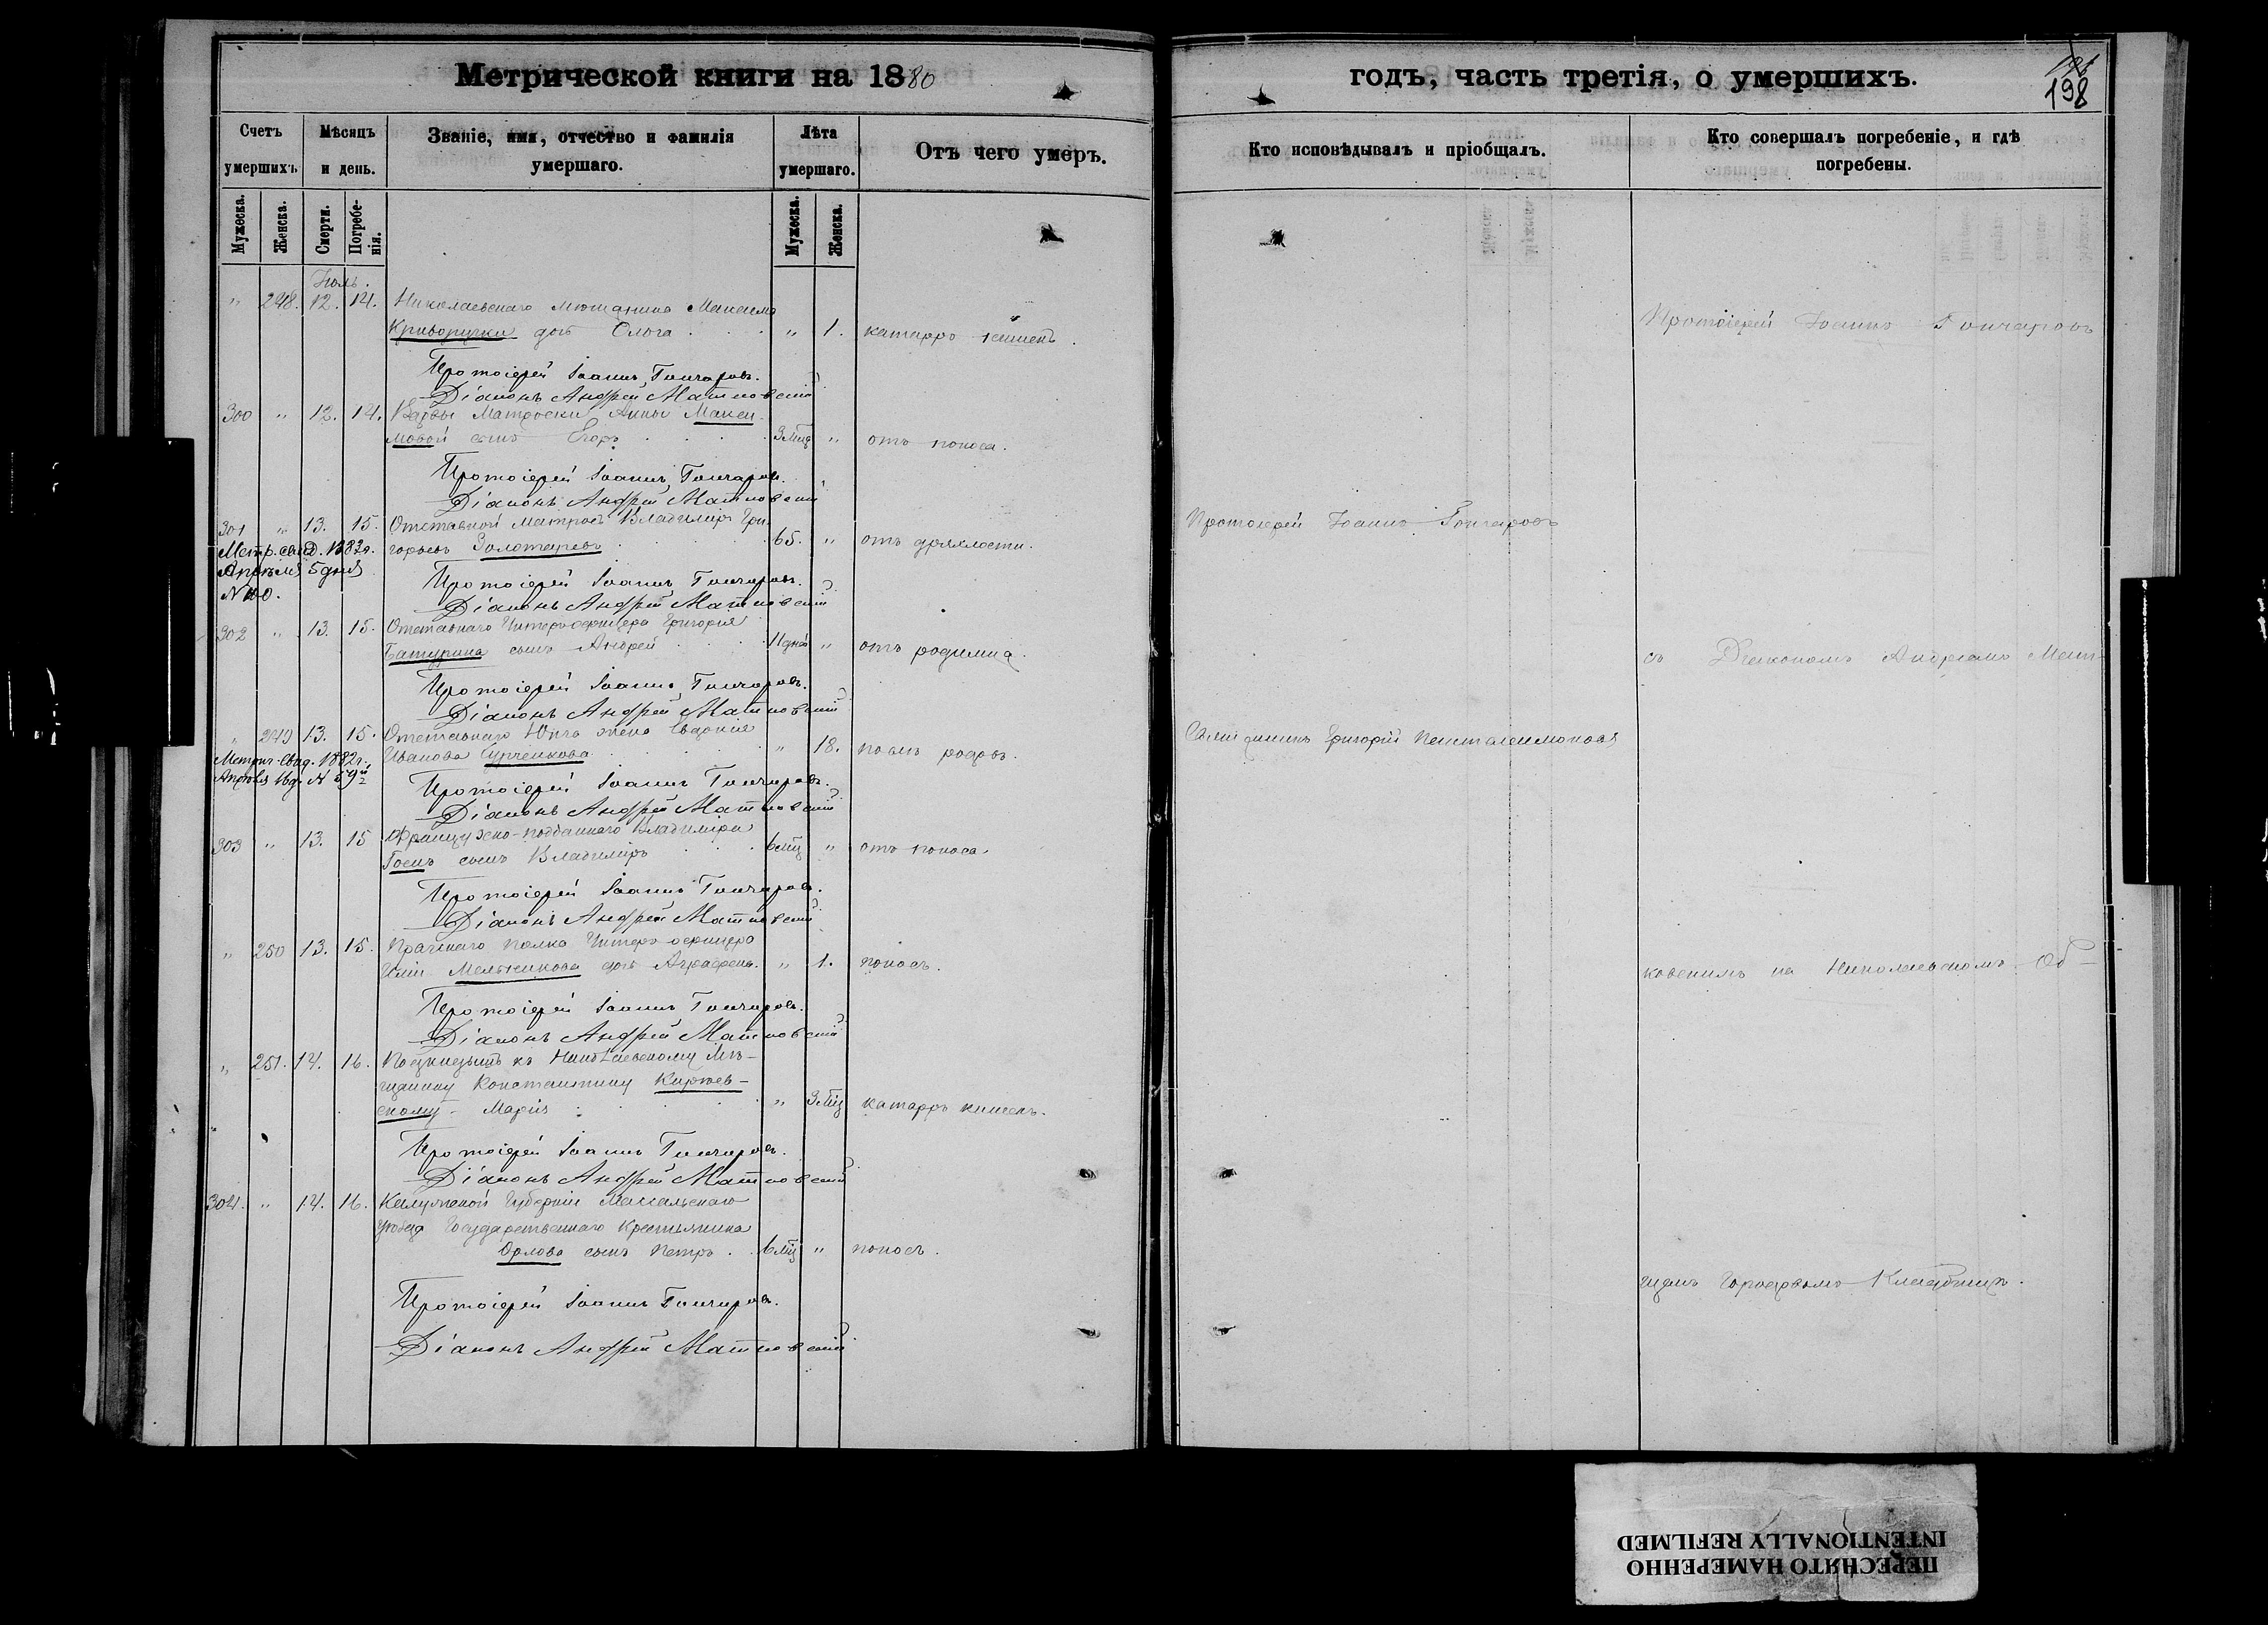 Метрической книги на 1880
годъ, часть третія, о умершихъ.
198
Счетъ умершихъ
Мѣсяцъ и день.
Званіе, имя, отчество и фамилія умершаго.
Лѣта умершаго.
Отъ чего умеръ.
Кто исповѣдывалъ и пріобщалъ.
Кто совершалъ погребеніе, и гдѣ погребены.
Мужеска. Женска. Смерти. Погребенія. Мужеска. Женска.
Іюль.
" 248. 12. 14. Николаевскаго мѣщанина Максима
Криворучки дочь Ольга " 1. катарръ кишекъ.
Протоіерей Іоаннъ Гончаровъ
Протоіерей Іоаннъ Гончаровъ.
Діаконъ Андрей
300 " 12. 14. Вдовы Матроски Анны Макси
мовой сынъ Егоръ 3 мца " отъ поноса.
Протоіерей Іоаннъ Гончаровъ.
Діаконъ Андрей
301 " 13. 15. Отставной Матросъ Владиміръ Гри
горьевъ Золотаревъ 65. " отъ дряхлости.
Протоіерей Іоаннъ Гончаровъ
Метр. свид. 1882 г.
Апрѣля 5 дня
Протоіерей Іоаннъ Гончаровъ.
Діаконъ Андрей
302 " 13. 15. Отставнаго Унтеръ-офицера Григорія
Батурина сынъ Андрей 11 дней " отъ родимца.
съ Діакономъ Андреемъ
Протоіерей Іоаннъ Гончаровъ.
Діаконъ Андрей
" 249 13. 15. Отставнаго жена Евдокія
Иванова " 18. послѣ родовъ.
Священникъ Григорій
Метрич. свид. 1882 г.
Апрѣля
Протоіерей Іоаннъ Гончаровъ.
Діаконъ Андрей
303 " 13. 15 Французско-подданнаго Владиміра
сынъ Владиміръ 6 мцъ " отъ поноса.
Протоіерей Іоаннъ Гончаровъ.
Діаконъ Андрей
" 250 13. 15. Пражскаго полка Унтеръ-офицера
Мельникова дочь Аграфена. " 1. поносъ.
на Николаевскомъ Об-
Протоіерей Іоаннъ Гончаровъ.
Діаконъ Андрей
" 251. 14. 16. Подкидышъ къ Николаевскому Мѣ-
щанину Константину
скому - Марія " 3 мцъ катарръ кишекъ.
Протоіерей Іоаннъ Гончаровъ.
Діаконъ Андрей
304. " 14. 16. Калужской Губерніи Масальскаго
уѣзда Государственнаго крестьянина
Орлова сынъ Петръ. 6 мцъ " поносъ.
щемъ Городскомъ Кладбищѣ.
Протоіерей Іоаннъ Гончаровъ.
Діаконъ Андрей
ПЕРЕСНЯТО НАМЕРЕННО
INTENTIONALLY REFILMED